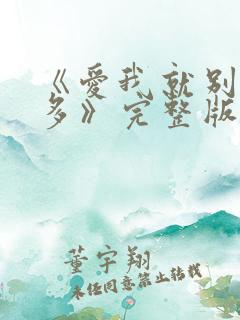 《愛我就別
多》完整版
董宇翔
未经同意禁止转载